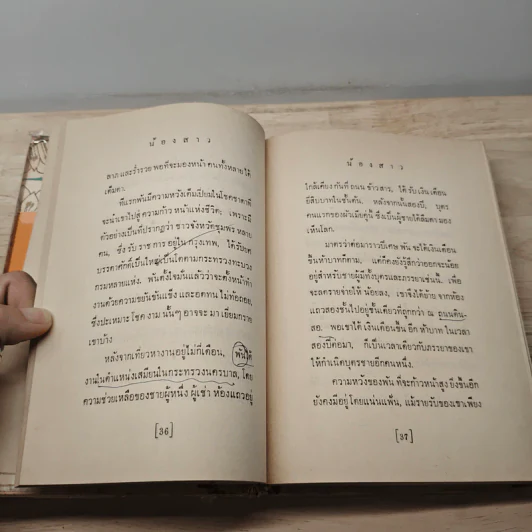 น้องสาว
ลาภ และร่ำรวย พอที่จะมองหน้า คนทั้งหลายได้
เต็มตา.
ที่แรกพันมีความหวังเต็มเปี่ยมในโชคชาตาที่
จะนำเขาไปสู่ ความก้าว หน้าแห่งชีวิต; เพราะมี
ตัวอย่างเป็นที่ปรากฏว่า ชาวจังหวัดชุมพร หลาย
คน, ซึ่ง รับ ราช การ อยู่ใน กรุงเทพ, ได้รับยศ
บรรดาศักดิ์เป็นใหญ่เป็นโตตามกระทรวงทบวง
กรมหลายแห่ง. พันตั้งใจมั่นแล้วว่าจะตั้งหน้าทำ
งานด้วยความขยันขันแข็ง และอดทน ไม่ท้อถอย,
ซึ่งปะเหมาะ โชค งาม นั้นๆ อาจจะ มา เยี่ยมกราย
เขาบ้าง
หลังจากเที่ยวหางานอยู่ไม่กี่เดือน, พันได้
งานในตำแหน่งเสมียนในกระทรวงนครบาล, โดย
ความช่วยเหลือของชายผู้หนึ่ง ผู้เช่า ห้องแถวอยู่
[36]
น้องสาว
ใกล้เคียง กันที่ ถนน ข้าวสาร, ได้ รับ เงิน เดือน
ยี่สิบบาทในชั้นต้น. หลังจากนั้นสองปี, บุตร
คนแรกของผัวเมียคู่นี้ ซึ่งเป็นผู้ชายได้ลืมตา มอง
เห็นโลก.
มาตรว่าต่อมาราวปีเศษ พัน จะได้เงินเดือน
ขึ้นห้าบาทก็ตาม, แต่ก็คงยังรู้สึกว่าออกจะน้อย
อยู่สำหรับชายผู้มีทั้งบุตรและภรรยาเช่นนี้. เพื่อ
จะลดรายจ่ายให้ น้อยลง, เขาจึงได้ย้าย จากห้อง
แถวสองชั้นไปอยู่ชั้นเดียวที่ถูกกว่า ณ ถนนดิน-
สอ. พอเขาได้ เงินเดือนขึ้น อีก ห้าบาท ในเวลา
สองปีต่อมา, ก็เป็นเวลาเดียวกับภรรยาของเขา
ให้กำเนิดบุตรชายอีกคนหนึ่ง.
ความหวังของพัน ที่จะก้าวหน้าสูง ยิ่งขึ้นอีก
ยังคงมีอยู่ โดยแน่นแฟ้น, แม้รายรับของเขาเพียง
[37]